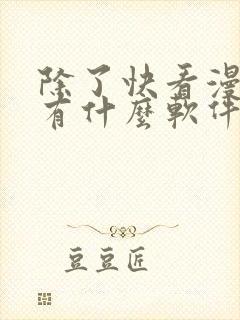 除了快看漫
有什麼軟件
豆豆匠